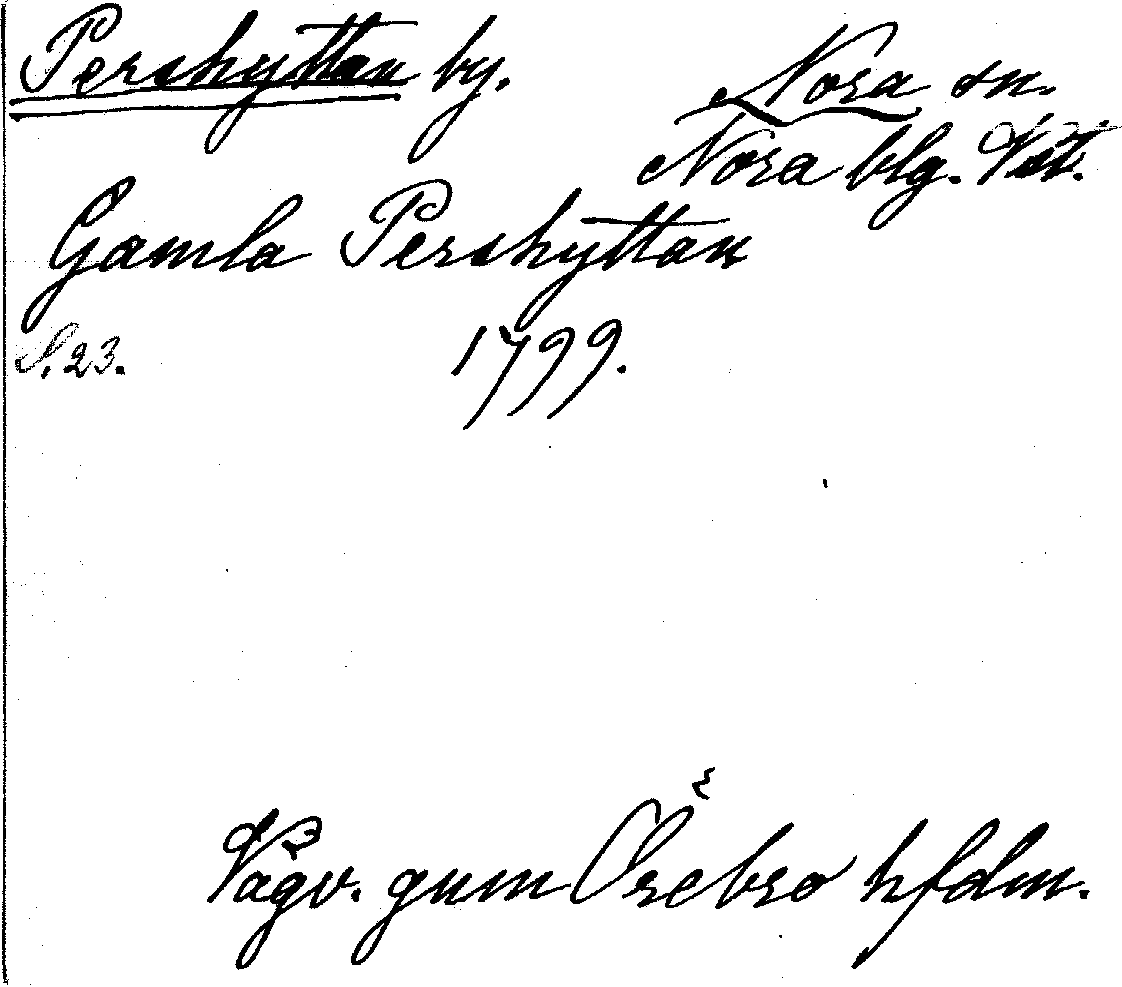 Pershyttan by.
Nora sn.
Nora blg. Vst.
Gamla Pershyttan
S. 23.
1799.
Vägv. gum Örebro hfdm.